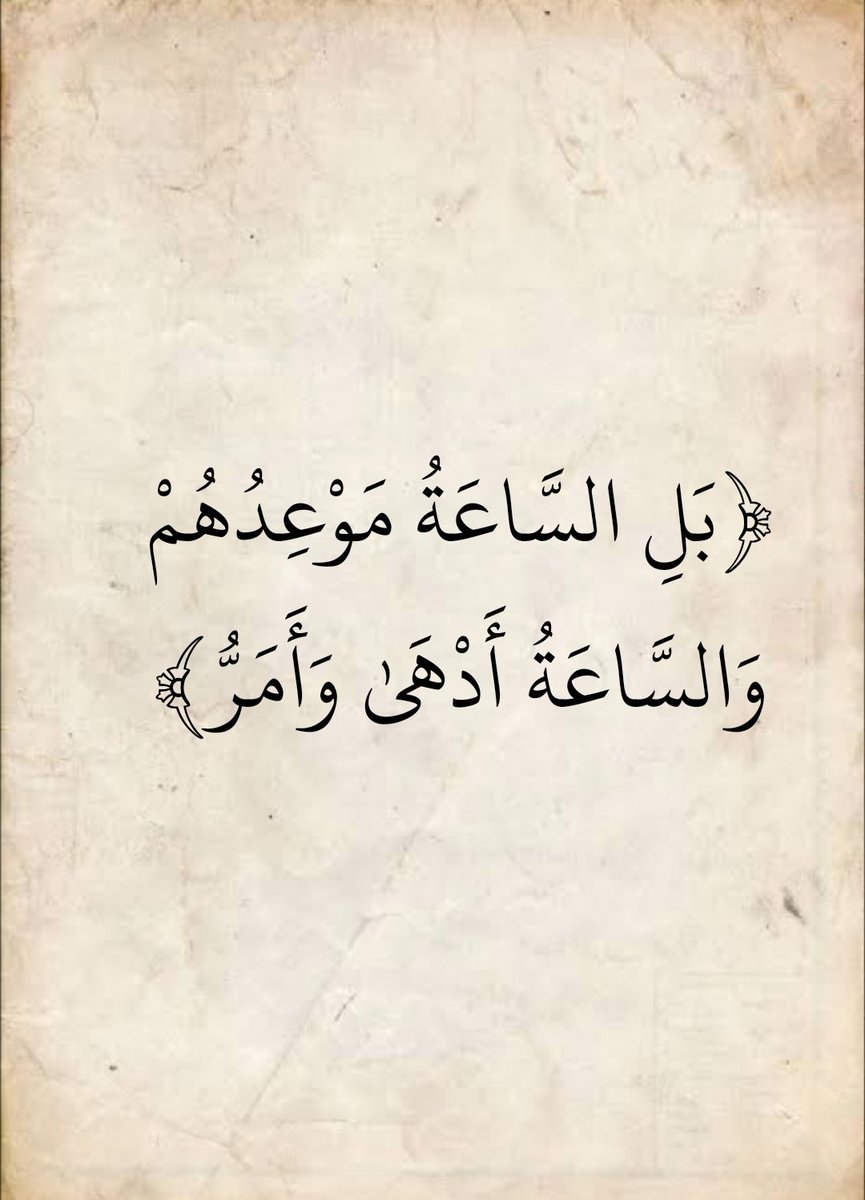 ﴿بَلِ السَّاعَةُ مَوْعِدُهُمْ
وَالسَّاعَةُ أَدْهَىٰ وَأَمَرُّ﴾